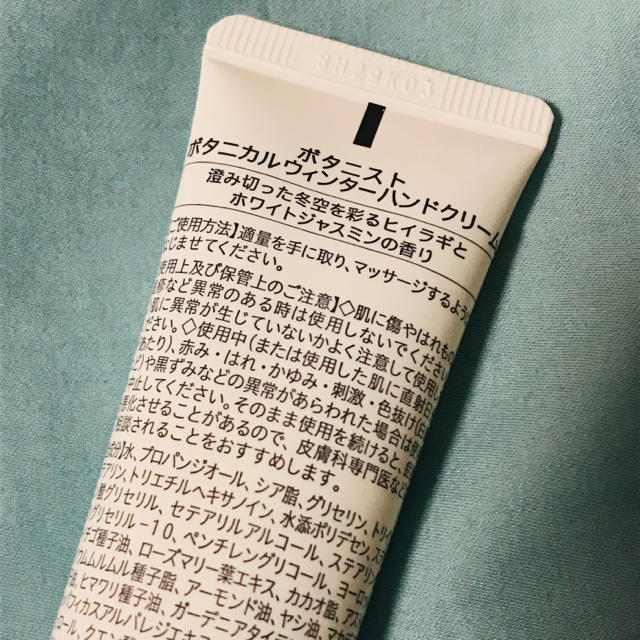 3H29K03
ボタニスト
ボタニカルウィンターハンドクリーム
澄み切った冬空を彩るヒイラギと
ホワイトジャスミンの香り
ご使用方法】適量を手に取り、マッサージするように
じませてください。
使用上及び保管上のご注意】◇肌に傷やはれもの
など異常のある時は使用しないでください
肌に異常が生じていないかよく注意して使用
ださい。◇使用中(または使用した肌に直射日
あたり)、赤み・はれ・かゆみ・刺激・色抜け(
)や黒ずみなどの異常があらわれた場合は使
止してください。そのまま使用を続けると、症
化させることがあるので、皮膚科専門医など
相談されることをおすすめします。
成分】水、プロパンジオール、シア脂、グリセリン、トリイ
アリン、トリエチルヘキサノイン、水添ポリデセン、ステ
酸グリセリル、セテアリルアルコール、ステアリン
グリセリル-10、ペンチレングリコール、ヨーロ
チゴ種子油、ローズマリー葉エキス、カカオ脂、アス
ウムムルムル種子脂、アーモンド油、ヤシ油、カ
油、ヒマワリ種子油、ガーデニアタイ
フィカスアルバレジエキス
ル、クエン酸